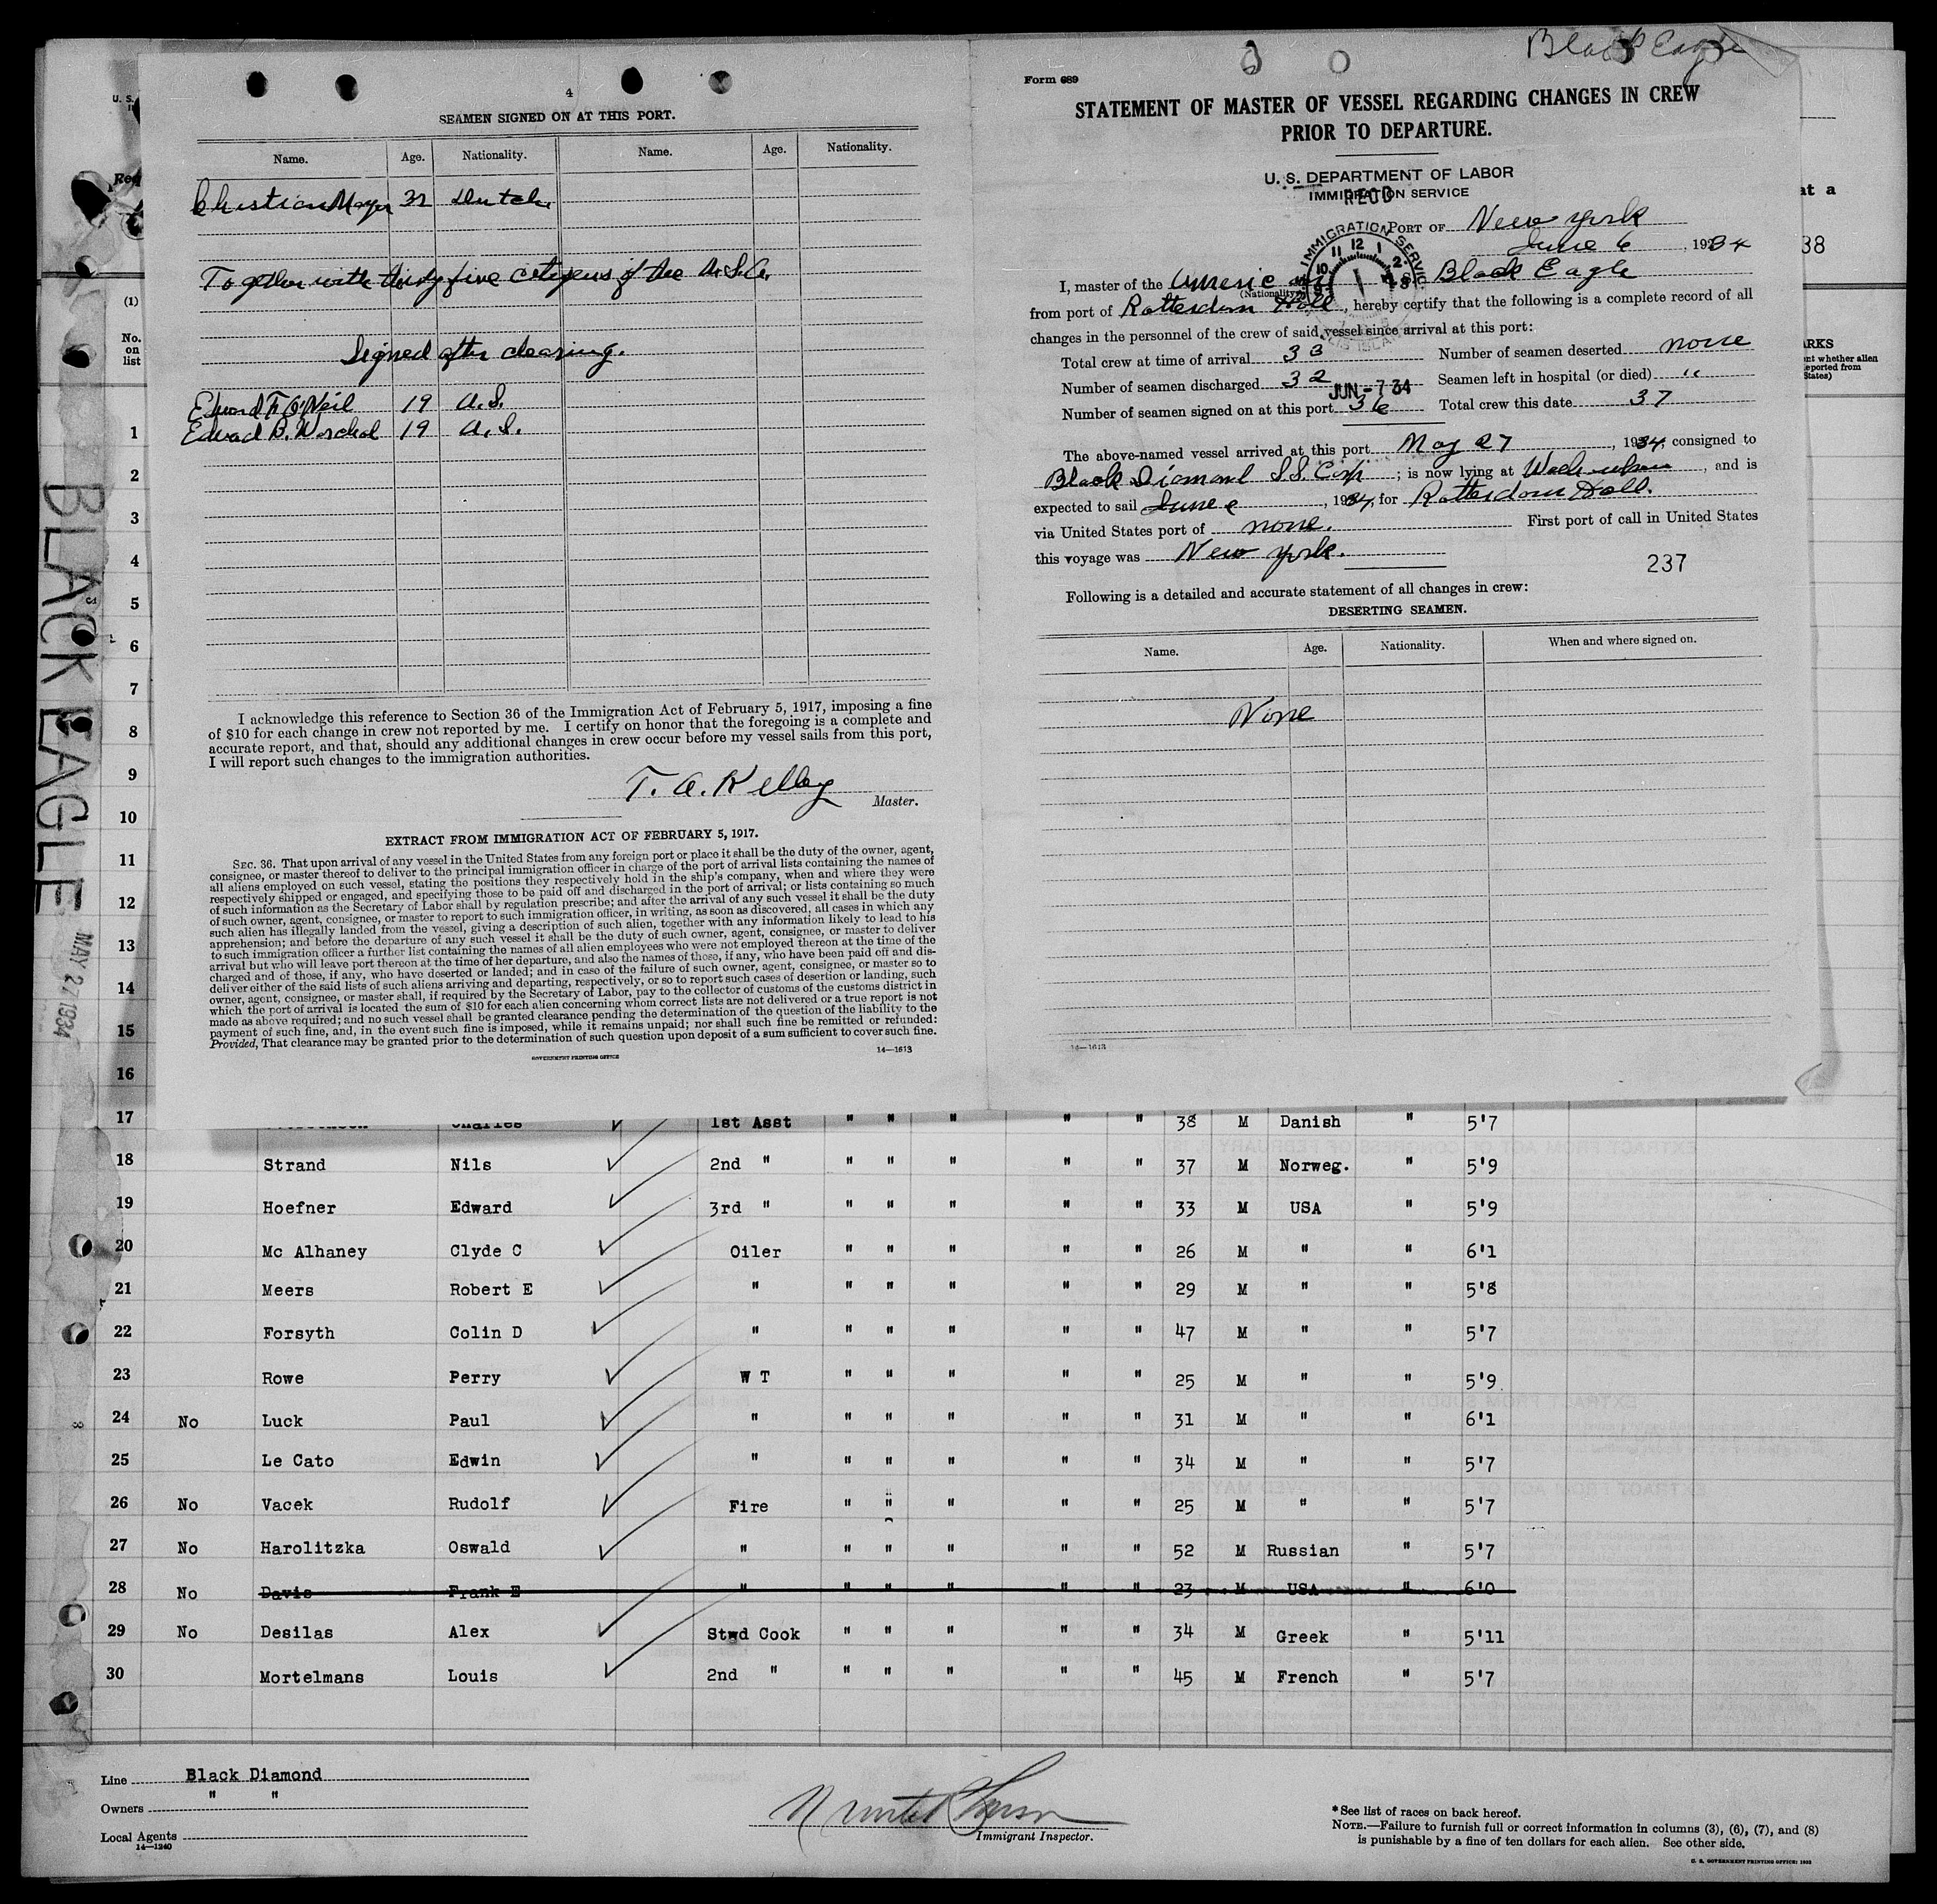 4
SEAMEN SIGNED ON AT THIS PORT.
Name. Age. Nationality. Name. Age. Nationality.
Christian Mayer 32 Dutch
Together with thirty five citizens of the U.S.A.
Signed after clearing.
Edward F. O'Neil 19 U.S.
Edward B. 19 U.S.
I acknowledge this reference to Section 36 of the Immigration Act of February 5, 1917, imposing a fine
of $10 for each change in crew not reported by me. I certify on honor that the foregoing is a complete and
accurate report, and that, should any additional changes in crew occur before my vessel sails from this port,
I will report such changes to the immigration authorities.
T. A. Kelley
Master.
EXTRACT FROM IMMIGRATION ACT OF FEBRUARY 5, 1917.
SEC. 36. That upon arrival of any vessel in the United States from any foreign port or place it shall be the duty of the owner, agent,
consignee, or master thereof to deliver to the principal immigration officer in charge of the port of arrival lists containing the names of
all aliens employed on such vessel, stating the positions they respectively hold in the ship's company, when and where they were
respectively shipped or engaged, and specifying those to be paid off and discharged in the port of arrival; or lists containing so much
of such information as the Secretary of Labor shall by regulation prescribe; and after the arrival of any such vessel it shall be the duty
of such owner, agent, consignee, or master to report to such immigration officer, in writing, as soon as discovered, all cases in which any
such alien has illegally landed from the vessel, giving a description of such alien, together with any information likely to lead to his
apprehension; and before the departure of any such vessel it shall be the duty of such owner, agent, consignee, or master to deliver
to such immigration officer a further list containing the names of all alien employees who were not employed thereon at the time of the
arrival but who will leave port thereon at the time of her departure, and also the names of those, if any, who have been paid off and dis-
charged and of those, if any, who have deserted or landed; and in case of the failure of such owner, agent, consignee, or master so to
deliver either of the said lists of such aliens arriving and departing, respectively, or so to report such cases of desertion or landing, such
owner, agent, consignee, or master shall, if required by the Secretary of Labor, pay to the collector of customs of the customs district in
which the port of arrival is located the sum of $10 for each alien concerning whom correct lists are not delivered or a true report is not
made as above required; and no such vessel shall be granted clearance pending the determination of the question of the liability to the
payment of such fine, and, in the event such fine is imposed, while it remains unpaid; nor shall such fine be remitted or refunded:
Provided, That clearance may be granted prior to the determination of such question upon deposit of a sum sufficient to cover such fine.
GOVERNMENT PRINTING OFFICE
14—1613
Black Eagle
Form 689
STATEMENT OF MASTER OF VESSEL REGARDING CHANGES IN CREW
PRIOR TO DEPARTURE.
U. S. DEPARTMENT OF LABOR
IMMIGRATION SERVICE
RECD
IMMIGRATION SERVICE
PORT OF New York
June 6 1934
I, master of the American Black Eagle
(Nationality)
from port of Rotterdam Holl, hereby certify that the following is a complete record of all
changes in the personnel of the crew of said vessel since arrival at this port:
Total crew at time of arrival 33 Number of seamen deserted none
Number of seamen discharged 32 Seamen left in hospital (or died) "
JUN-7 34
Number of seamen signed on at this port 36 Total crew this date 37
The above-named vessel arrived at this port May 27, 1934, consigned to
Black Diamond S.S. Corp; is now lying at Weehawken, and is
expected to sail June 6, 1934, for Rotterdam Holl.
via United States port of none. First port of call in United States
this voyage was New York.
237
Following is a detailed and accurate statement of all changes in crew:
DESERTING SEAMEN.
Name. Age. Nationality. When and where signed on.
None
14—1613
U. S.
Req
at a
38
(1)
No. on list
ARKS
BLACK EAGLE
MAY 27 1934
1
2
3
4
5
6
7
8
9
10
11
12
13
14
15
16
17 Charles 1st Asst " " " " " 38 M Danish " 5'7
18 Strand Nils 2nd " " " " " " 37 M Norweg. " 5'9
19 Hoefner Edward 3rd " " " " " " 33 M USA " 5'9
20 Mc Alhaney Clyde C Oiler " " " " " 26 M " " 6'1
21 Meers Robert E " " " " " " 29 M " " 5'8
22 Forsyth Colin D " " " " " " 47 M " " 5'7
23 Rowe Perry W T " " " " " 25 M " " 5'9
24 No Luck Paul " " " " " " 31 M " " 6'1
25 Le Cato Edwin " " " " " " 34 M " " 5'7
26 No Vacek Rudolf Fire " " " " " 25 M " " 5'7
27 No Harolitzka Oswald " " " " " " 52 M Russian " 5'7
28 No Davis Frank E " " " " " " 23 M USA " 6'0
29 No Desilas Alex Stwd Cook " " " " " 34 M Greek " 5'11
30 Mortelmans Louis 2nd " " " " " " 45 M French " 5'7
Line Black Diamond
Owners " "
Local Agents
14—1240
Immigrant Inspector.
*See list of races on back hereof.
NOTE.—Failure to furnish full or correct information in columns (3), (6), (7), and (8)
is punishable by a fine of ten dollars for each alien. See other side.
U. S. GOVERNMENT PRINTING OFFICE: 1933